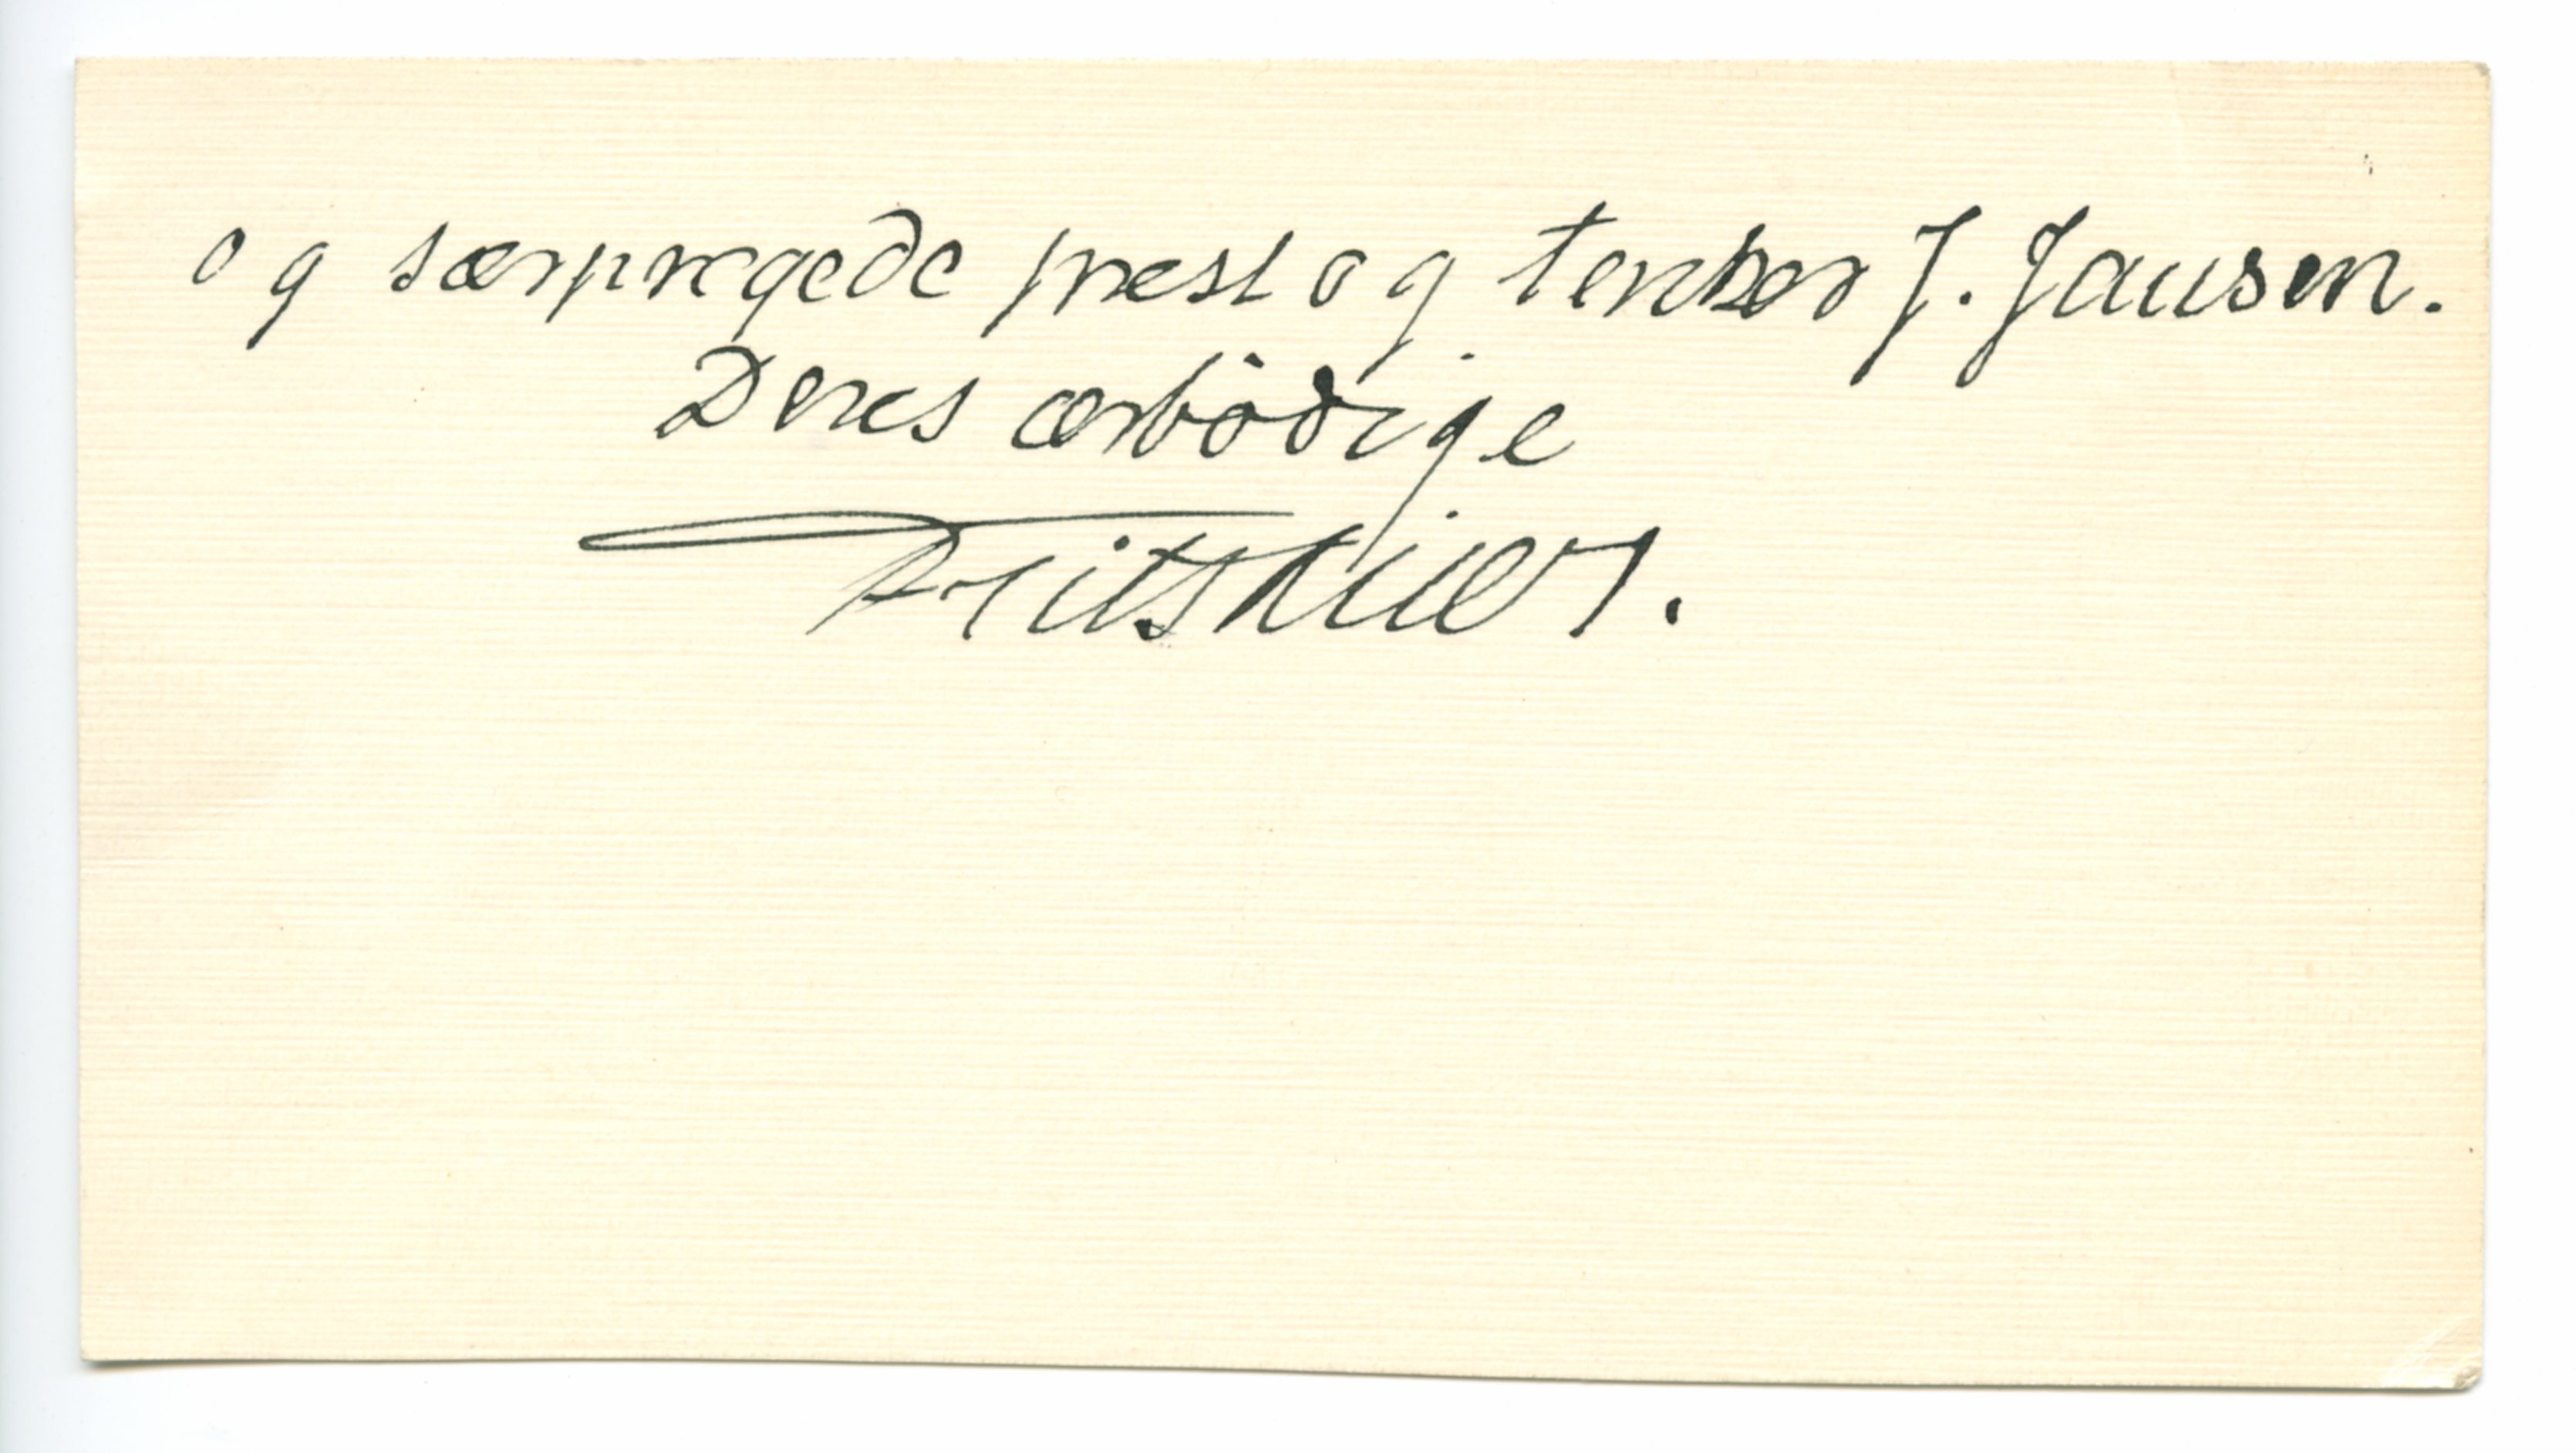 og særprægede præst og tenker J. Jansen.
Deres ærbödige
Fritskiær.